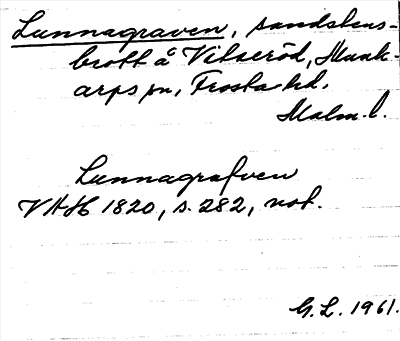 Lunnagraven, sandstens-
brott å Vitseröd, Munk-
arps sn, Frosta hd,
Malm. l.
Lunnagrafven
VAH 1820, s. 282, not.
G. L. 1961.